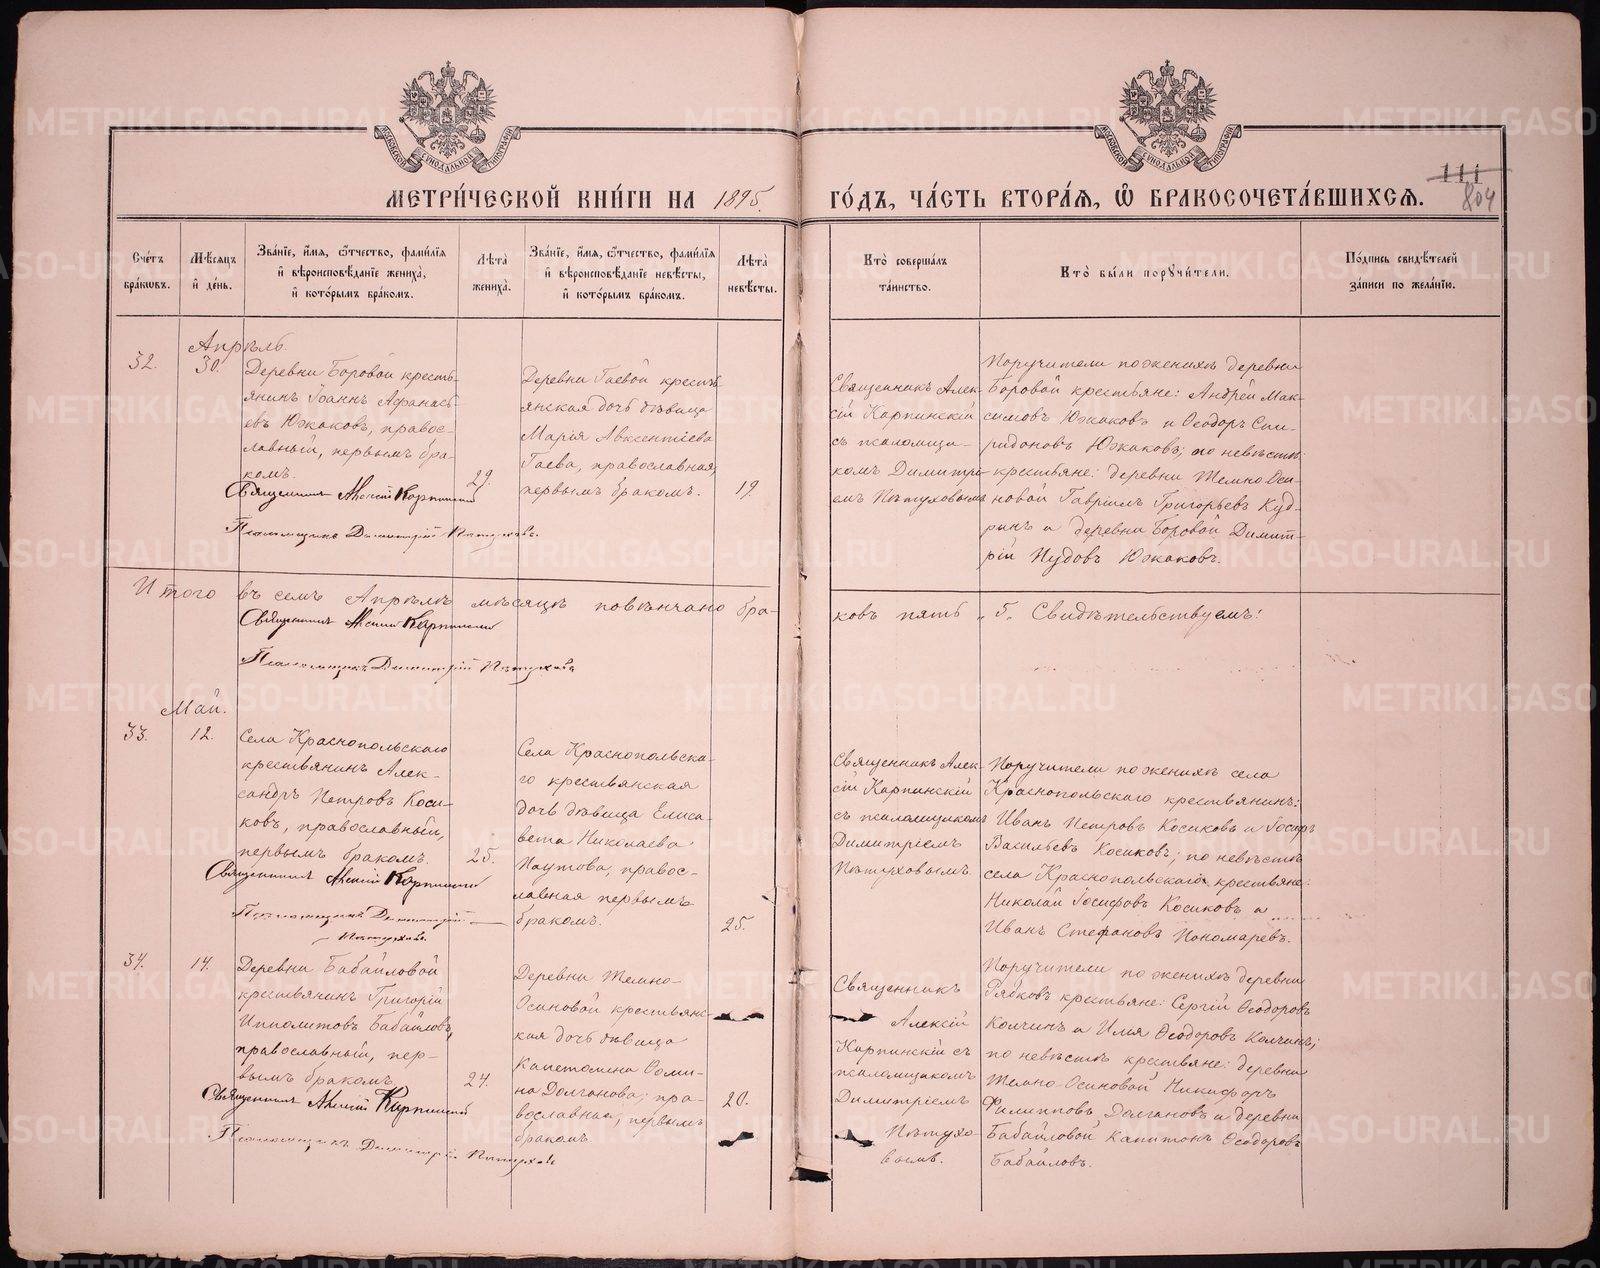 МЕТРИ́ЧЕСКОЙ КНИ́ГИ НА 1895. ГО́ДЪ, ЧА́СТЬ ВТОРА́Я, Ѽ БРАКОСОЧЕТА́ВШИХСЯ.
111
804
МОСКОВСКОЙ СѴНОДАЛЬНОЙ ТИПОГРАФІИ
МОСКОВСКОЙ СѴНОДАЛЬНОЙ ТИПОГРАФІИ
Сче́тъ бра́ковъ.
Мѣ́сяцъ и҆ де́нь.
Зва́нїе, и҆́мя, ѻ҆́тчество, фами́лїя и҆ вѣроисповѣ́данїе жениха̀, и҆ кото́рымъ бра́комъ.
Лѣ́та жениха̀.
Зва́нїе, и҆́мя, ѻ҆́тчество, фами́лїя и҆ вѣроисповѣ́данїе невѣ́сты, и҆ кото́рымъ бра́комъ.
Лѣ́та невѣ́сты.
Кто̀ соверша́лъ та́инство.
Кто̀ бы́ли порꙋчи́тели.
По́дпись свидѣ́телей за́писи по жела́нїю.
Апрѣль
32.
30.
Деревни Боровой кресть-
янинъ Іоаннъ Афанась-
евъ Южаковъ, правос-
лавный, первымъ бра-
комъ.
29.
Священникъ Алексій Карпинскій
Псаломщикъ Димитрій Пѣтуховъ.
Деревни Гаевой кресть-
янская дочь дѣвица
Марія Авксентіева
Гаева, православная,
первымъ бракомъ.
19.
Священникъ Алек-
сій Карпинскій
съ псаломщи-
комъ Димитрі-
емъ Пѣтуховымъ
Поручители по женихѣ деревни
Боровой крестьяне: Андрей Мак-
симовъ Южаковъ и Ѳеодоръ Спи-
ридоновъ Южаковъ; по невѣстѣ
крестьяне: деревни Темно-Оси-
новой Гавріилъ Григорьевъ Куд-
ринъ и деревни Боровой Димит-
рій Нудовъ Южаковъ.
Итого въ семъ Апрѣлѣ мѣсяцѣ повѣнчано бра-
ковъ пять „5„ Свидѣтельствуемъ:
Священникъ Алексій Карпинскій
Псаломщикъ Димитрій Пѣтуховъ
Май.
33.
12.
Села Краснопольскаго
крестьянинъ Алек-
сандръ Петровъ Коси-
ковъ, православный,
первымъ бракомъ.
25.
Священникъ Алексій Карпинскій
Псаломщикъ Димитрій
Пѣтуховъ.
Села Краснопольска-
го крестьянская
дочь дѣвица Елиса-
вета Николаева
Паутова, правос-
лавная первымъ
бракомъ.
25.
Священникъ Алек-
сій Карпинскій
съ псаломщикомъ
Димитріемъ
Пѣтуховымъ
Поручители по женихѣ села
Краснопольскаго крестьянинъ:
Иванъ Петровъ Косиковъ и Іосифъ
Васильевъ Косиковъ; по невѣстѣ
села Краснопольскаго крестьяне:
Николай Іосифовъ Косиковъ и
Иванъ Стефановъ Пономаревъ.
34.
14.
Деревни Бабайловой
крестьянинъ Григорій
Ипполитовъ Бабайловъ,
православный, пер-
вымъ бракомъ
24.
Священникъ Алексій Карпинскій
Псаломщикъ Димитрій Пѣтуховъ
Деревни Темно-
Осиновой крестьянс-
кая дочь дѣвица
Капетолина Ѳоми-
на Долганова, пра-
вославная, первымъ
бракомъ
20.
Священникъ
Алексій
Карпинскій съ
псаломщикомъ
Димитріемъ
Пѣтухо-
вымъ.
Поручители по женихѣ деревни
Рябковъ крестьяне: Сергій Ѳеодоровъ
Колчинъ и Илья Ѳеодоровъ Колчинъ;
по невѣстѣ крестьяне: деревни
Темно-Осиновой Никифоръ
Филипповъ Долгановъ и деревни
Бабайловой Капитонъ Ѳеодоровъ
Бабайловъ.
METRIKI.GASO-URAL.RU